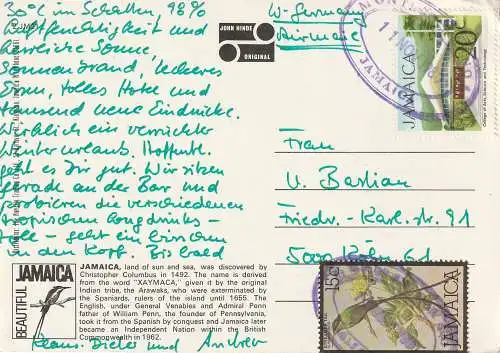 30°C im Schatten, 98%
Luftfeuchtigkeit und
herrliche Sonne,
Sonnenbrand, leckeres
Essen, tolles Hotel und
tausend neue Eindrücke.
Wirklich ein verrückter
Winterurlaub. Hoffentl.
geht es Dir gut. Wir sitzen
gerade an der Bar und
probieren die verschiedenen
tropischen Longdrinks –
tolle – geht ein bisschen
in den Kopf. Bis bald
Klaus-Dieter und Andrea
JOHN HINDE
ORIGINAL
W-Germany
Airmail
JAMAICA
20
College of Arts, Science and Technology
11 NOV
JAMAICA
Frau
U. Bastian
Friedr.-Karl-str. 91
5000 Köln 61
15c
JAMAICA
BEAUTIFUL
JAMAICA
JAMAICA, land of sun and sea, was discovered by
Christopher Columbus in 1492. The name is derived
from the word "XAYMACA," given it by the original
Indian tribe, the Arawaks, who were exterminated by
the Spaniards, rulers of the island until 1655. The
English, under General Venables and Admiral Penn
father of William Penn, the founder of Pennsylvania,
took it from the Spanish by conquest and Jamaica later
became an Independent Nation within the British
Commonwealth in 1962.